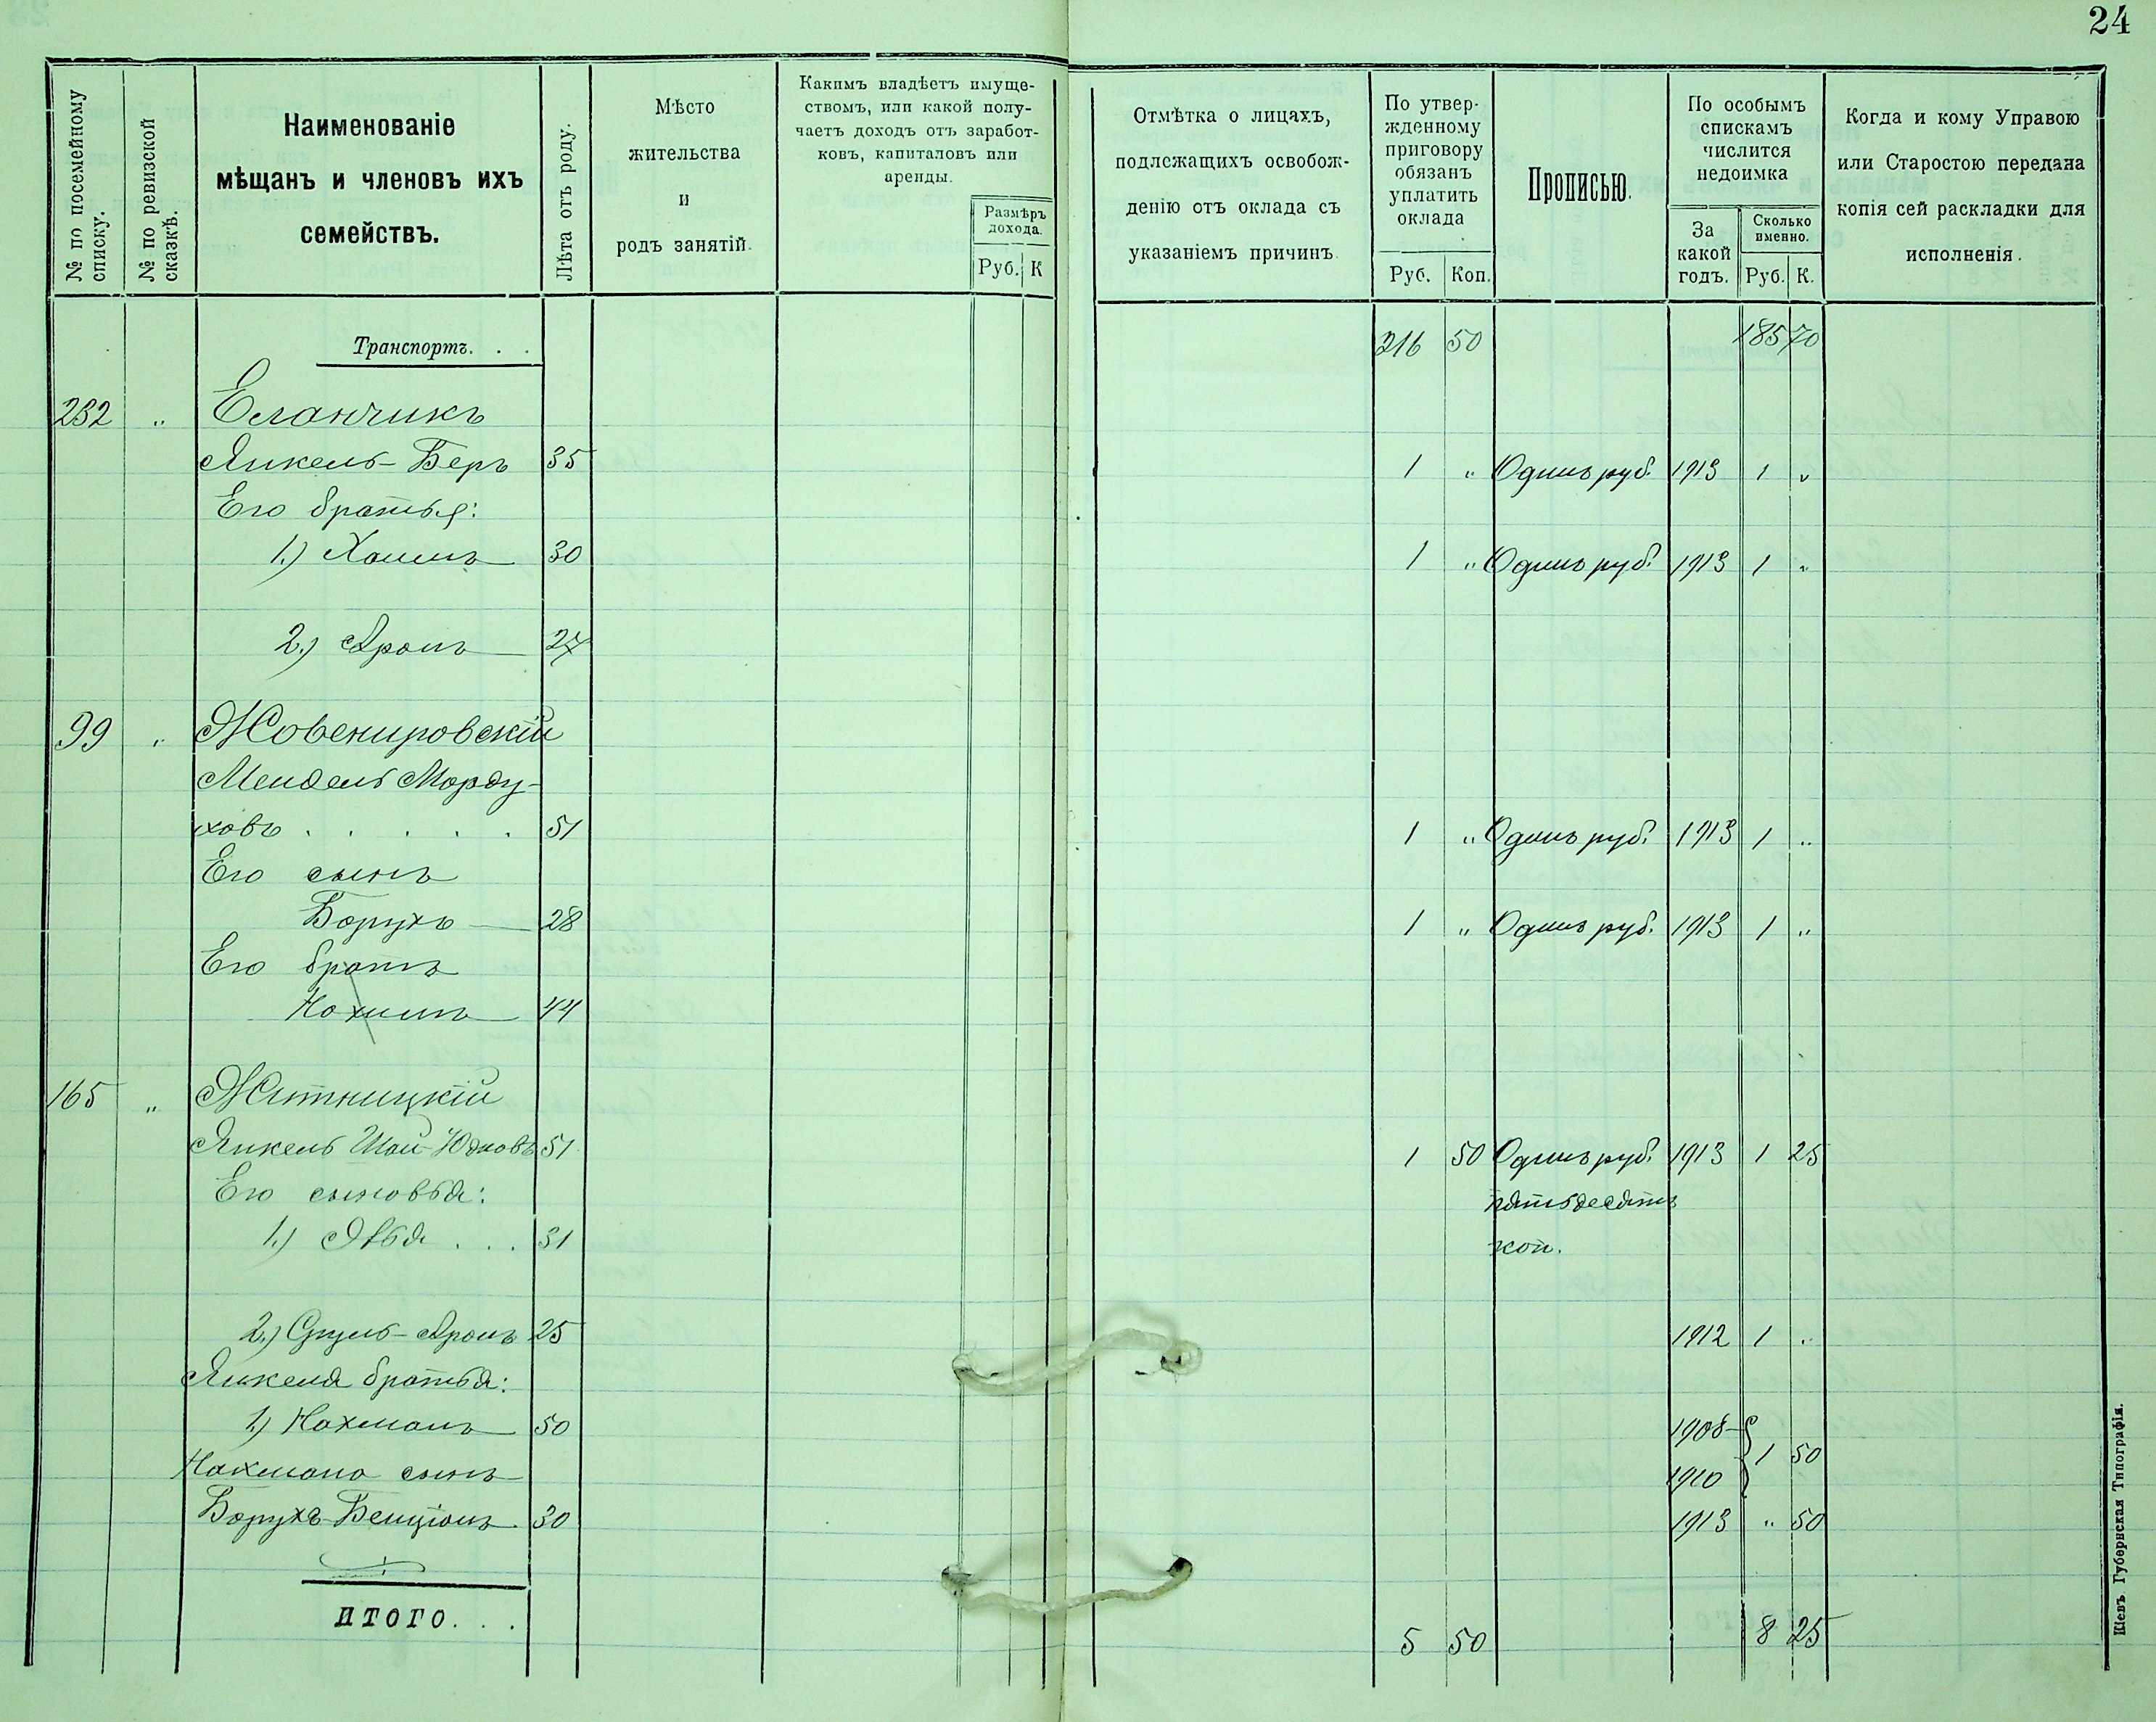 24
№ по посемейному списку.
№ по ревизской сказкѣ.
Наименованіе мѣщанъ и членовъ ихъ семействъ.
Лѣта отъ роду.
Мѣсто жительства и родъ занятій.
Какимъ владѣетъ имуще-
ствомъ, или какой полу-
чаетъ доходъ отъ заработ-
ковъ, капиталовъ или
аренды.
Размѣръ дохода.
Руб. К
Отмѣтка о лицахъ,
подлежащихъ освобож-
денію отъ оклада съ
указаніемъ причинъ.
По утвер-
жденному
приговору
обязанъ
уплатить
оклада
Руб. Коп.
Прописью.
По особымъ
спискамъ
числится
недоимка
За какой годъ.
Сколько именно.
Руб. К.
Когда и кому Управою
или Старостою передана
копія сей раскладки для
исполненія.
Транспортъ. . . 216 50 185 70
232 " Еланчикъ
Янкель-Беръ 35 1 " Одинъ руб. 1913 1 "
Его братья:
1.) Хаимъ 30 1 " Одинъ руб. 1913 1 "
2.) Аронъ 27
99 " Жовенировскій
Мендель Морду-
ховъ . . . . . 51 1 " Одинъ руб. 1913 1 "
Его сынъ
Борухъ 28 1 " Одинъ руб. 1913 1 "
Его братъ
Нохимъ 44
165 " Житницкій
Янкель Шай-Юдковъ 51 1 50 Одинъ руб. 1913 1 25
Его сыновья: пятьдесятъ
1.) . . . 31 коп.
2.) Сруль-Аронъ 25 1912 1 "
Янкеля братья:
1.) Нахманъ 50 1908-
1 50
Нахмана сынъ 1910
Борухъ-Бенціонъ 30 1913 " 50
ИТОГО. . . 5 50 8 25
Кіевъ Губернская Типографія.